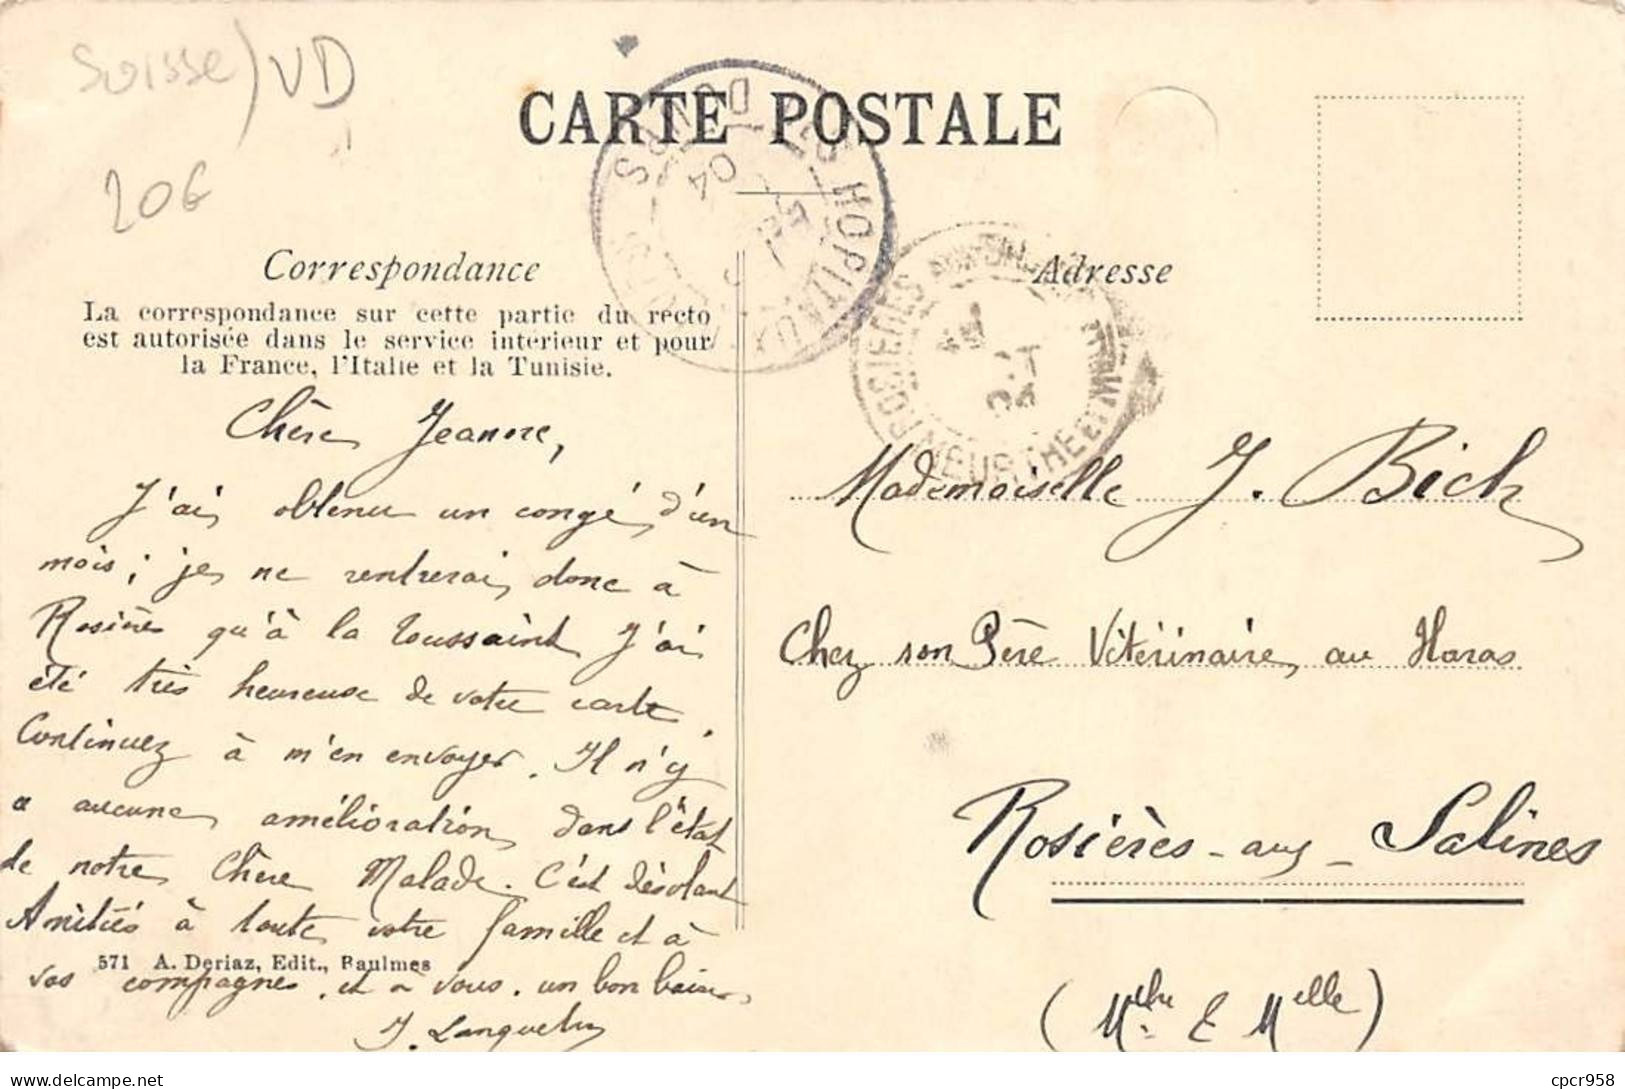 Suisse) VD
20€
CARTE POSTALE
Correspondance
La correspondance sur cette partie du recto
est autorisée dans le service intérieur et pour
la France, l'Italie et la Tunisie.
Adresse
LES HOPITAUX DOUBS
04
ROSIERES AUX SALINES
MEURTHE ET M
04
Chère Jeanne,
J'ai obtenu un congé d'un
mois ; je ne rentrerai donc à
Rosières qu'à la Toussaint J'ai
été très heureuse de votre carte.
Continuez à m'en envoyer. Il n'y
a aucune amélioration dans l'état
de notre Chère Malade. C'est désolant
Amitiés à toute votre famille et à
vos compagnes, et à vous, un bon baiser
J.
571 A. Deriaz, Edit., Baulmes
Mademoiselle J. Bich
Chez son Père Vétérinaire au Haras
Rosières-aux-Salines
(Mthe & Mselle)
delcampe.net
cpcr958